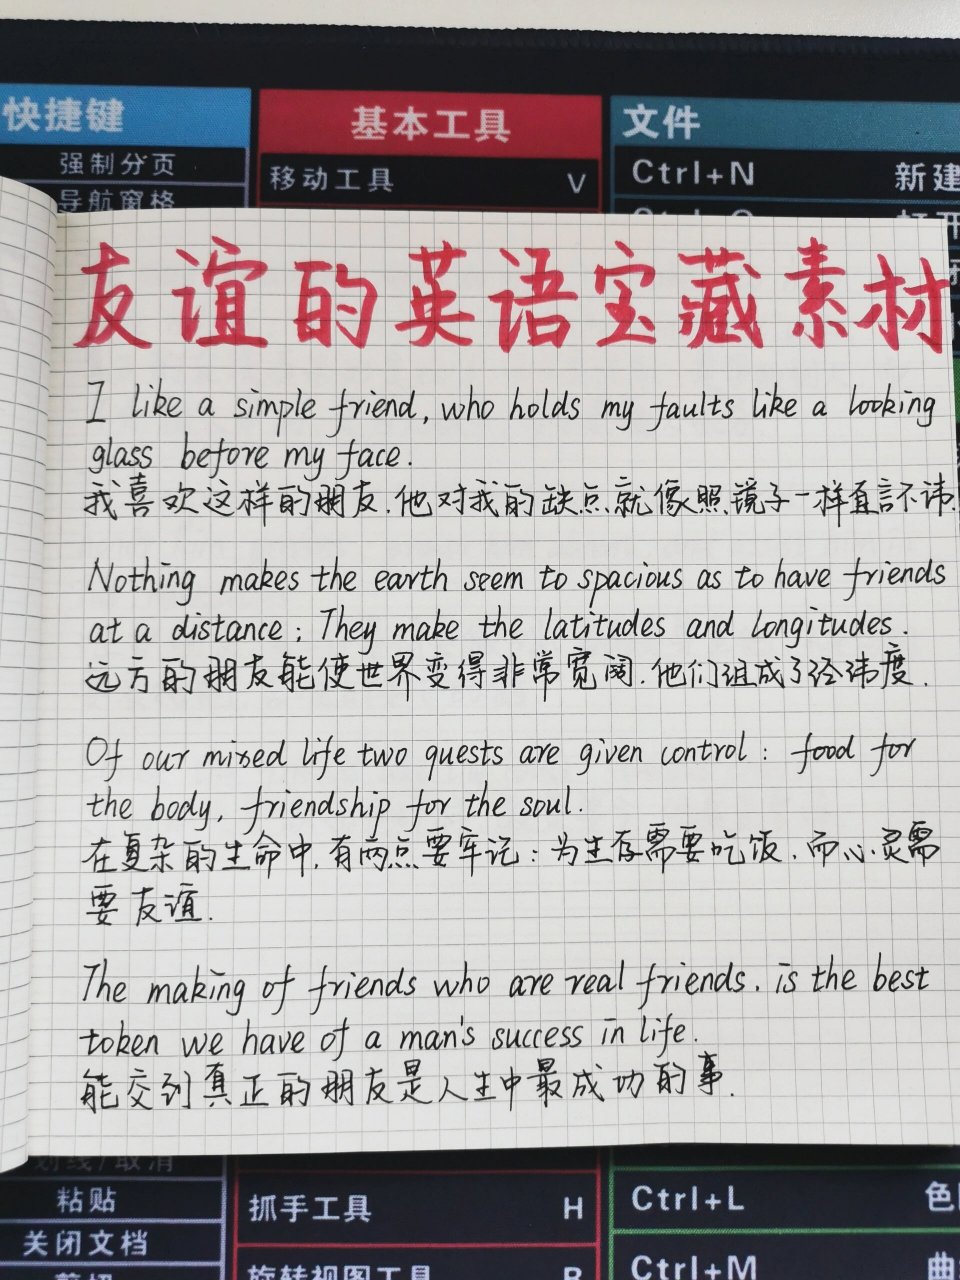 快捷键
强制分页
导航窗格
基本工具
移动工具 V
文件
Ctrl+N 新建
友谊的英语宝藏素材
I like a simple friend, who holds my faults like a looking
glass before my face.
我喜欢这样的朋友.他对我的缺点就像照镜子一样直言不讳.
Nothing makes the earth seem to spacious as to have friends
at a distance; They make the latitudes and longitudes.
远方的朋友能使世界变得非常宽阔.他们组成了经纬度.
Of our mixed life two quests are given control: food for
the body, friendship for the soul.
在复杂的生命中,有两点要牢记:为生存需要吃饭.而心灵需
要友谊.
The making of friends who are real friends. is the best
token we have of a man's success in life.
能交到真正的朋友是人生中最成功的事.
划线/取消
粘贴
关闭文档
剪切
抓手工具 H
旋转视图工具 R
Ctrl+L 色
Ctrl+M 曲